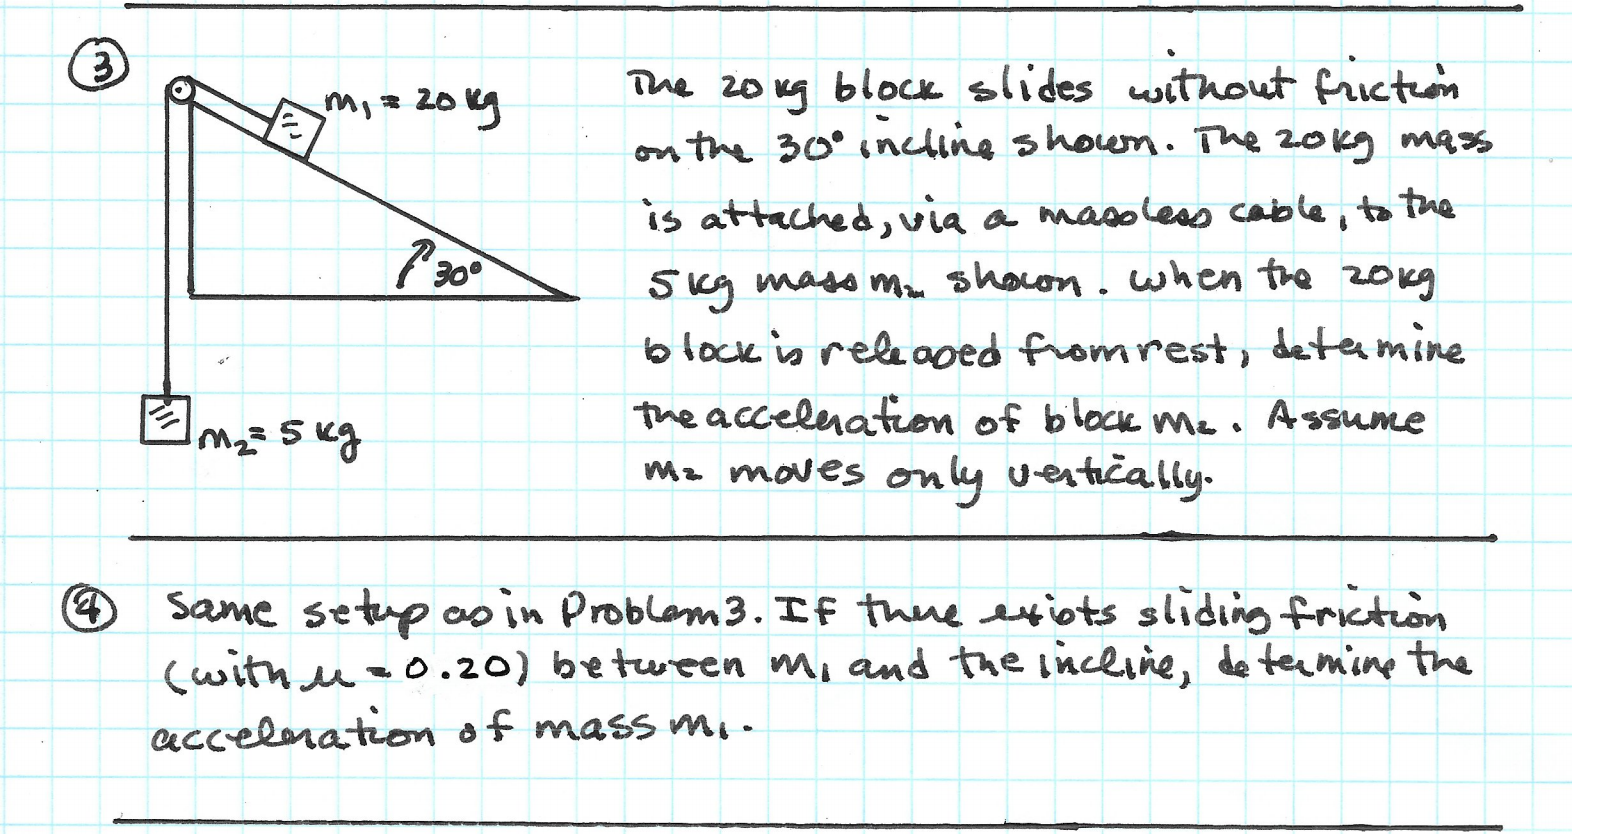 ③
m₁ = 20 kg
30°
m₂ = 5 kg
The 20 kg block slides without friction
on the 30° incline shown. The 20kg mass
is attached, via a massless cable, to the
5 kg mass m₂ shown. When the 20kg
block is released from rest, determine
the acceleration of block m₂. Assume
m₂ moves only vertically.
④ Same setup as in Problem 3. If there exists sliding friction
(with μ = 0.20) between m₁ and the incline, determine the
acceleration of mass m₁.